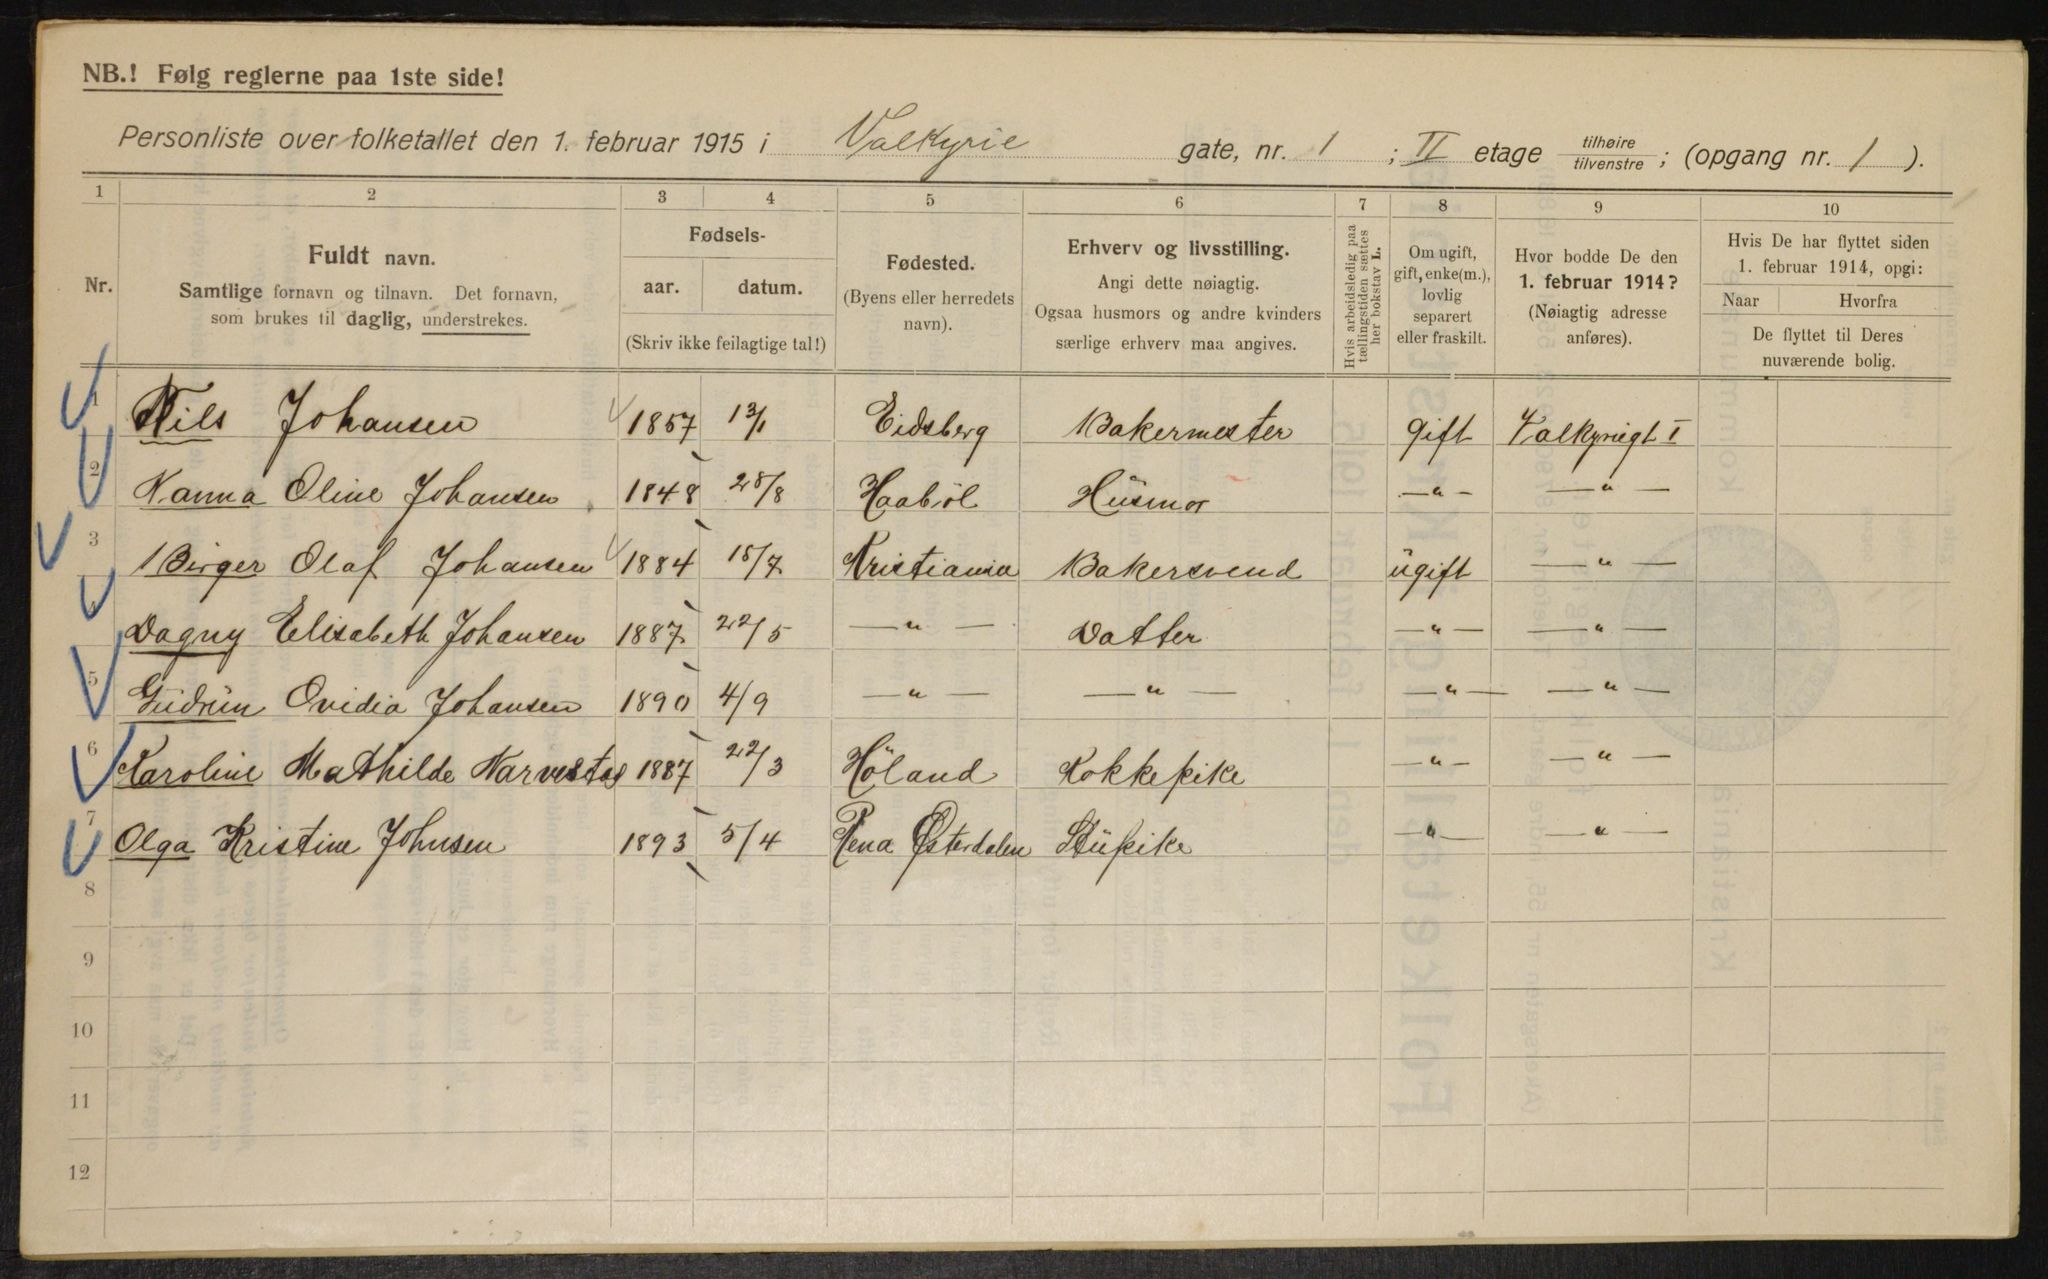 NB.! Følg reglerne paa 1ste side!
Personliste over folketallet den 1. februar 1915 i Valkyrie gate, nr. 1 ; II etage tilhøire tilvenstre ; (opgang nr. 1 ).
1 2 3 4 5 6 7 8 9 10
Nr.
Fuldt navn.
Samtlige fornavn og tilnavn. Det fornavn,
som brukes til daglig, understrekes.
Fødsels-
aar. datum.
(Skriv ikke feilagtige tal!)
Fødested.
(Byens eller herredets
navn).
Erhverv og livsstilling.
Angi dette nøiagtig.
Ogsaa husmors og andre kvinders
særlige erhverv maa angives.
Hvis arbeidsledig paa
tællingstiden sættes
her bokstav L.
Om ugift,
gift, enke(m.),
lovlig
separert
eller fraskilt.
Hvor bodde De den
1. februar 1914?
(Nøiagtig adresse
anføres).
Hvis De har flyttet siden
1. februar 1914, opgi:
Naar Hvorfra
De flyttet til Deres
nuværende bolig.
1 Nils Johansen 1857 13/1 Eidsberg Bakermester gift Valkyriegt I
2 Nanna Oline Johansen 1848 28/8 Haabøl Husmor —"— —"—
3 Birger Olaf Johansen 1884 18/7 Kristiania Bakersvend ugift —"—
4 Dagny Elisabeth Johansen 1887 22/5 —"— Datter —"— —"—
5 Gudrun Ovidia Johansen 1890 4/9 —"— —"— —"— —"—
6 Karoline Mathilde Narvestad 1887 22/3 Höland Kokkepike —"— —"—
7 Olga Kristine Johnsen 1893 5/4 Rena Østerdalen Stüpike —"— —"—
8
9
10
11
12